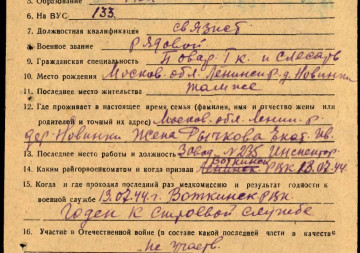 5. Образование
6. На ВУС 133
7. Должностная квалификация связист
8. Военное звание рядовой
9. Гражданская специальность Товар. Гк. и слесарь
10. Место рождения Москов. обл. Ленинск. р-д. Новинки
11. Последнее место жительства там же
12. Где проживает в настоящее время семья (фамилия, имя и отчество жены или
родителей и точный их адрес) Москов. обл. Ленин. р.
дер. Новинки Жена Рычкова Екат. Ив.
13. Последнее место работы и должность Завод №235
Воткинск
14. Каким райгорвоенкоматом и когда призван РВК 13.07.44
15. Когда и где проходил последний раз медкомиссию и результат годности к
военной службе 13.07.44 г. Воткинск РВК.
Годен к строевой службе
16. Участие в Отечественной войне (в составе какой последней части в качестве
не участв.